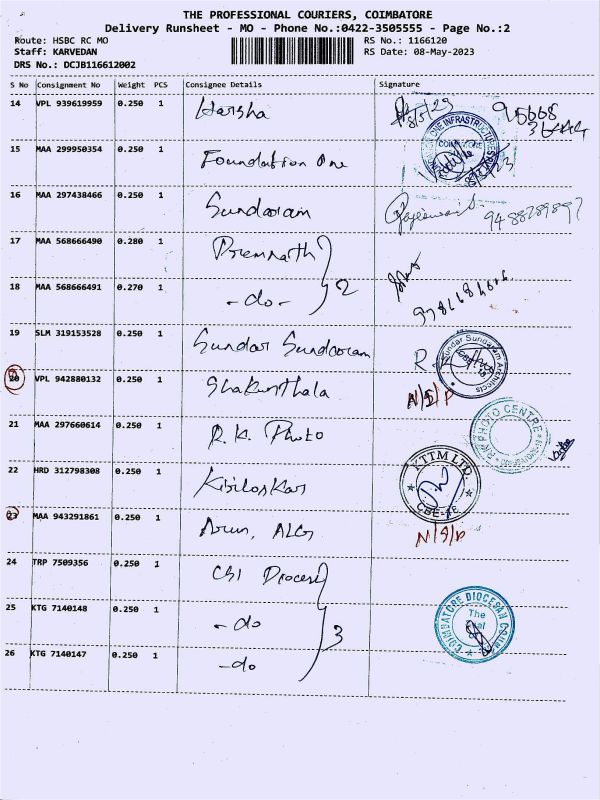 THE PROFESSIONAL COURIERS, COIMBATORE
Delivery Runsheet - MO - Phone No.:0422-3505555 - Page No.:2
Route: HSBC RC MO RS No.: 1166120
Staff: KARVEDAN RS Date: 08-May-2023
DRS No.: DCJB116612002
S No Consignment No Weight PCS Consignee Details Signature
14 VPL 939619959 0.250 1 Harsha 8/5/23 95668
15 MAA 299950354 0.250 1 Foundation One
16 MAA 297438466 0.250 1 Sundaram 9488789897
17 MAA 568666490 0.280 1 Premnath
2
18 MAA 568666491 0.270 1 -do-
19 SLM 319153528 0.250 1 Sundar Sundaram R. Sundar Sundaram Architects
20 VPL 942880132 0.250 1 Shakunthala N/S/P
21 MAA 297660614 0.250 1 R.K. Photo R.K. PHOTO CENTRE
22 HRD 312798308 0.250 1 Kirloskar KTTM LTD. CBE-18
23 MAA 943291861 0.250 1 Arun, ALG N/S/P
24 TRP 7509356 0.250 1 CSI Diocese
25 KTG 7140148 0.250 1 -do 3 COIMBATORE DIOCESAN The
26 KTG 7140147 0.250 1 -do